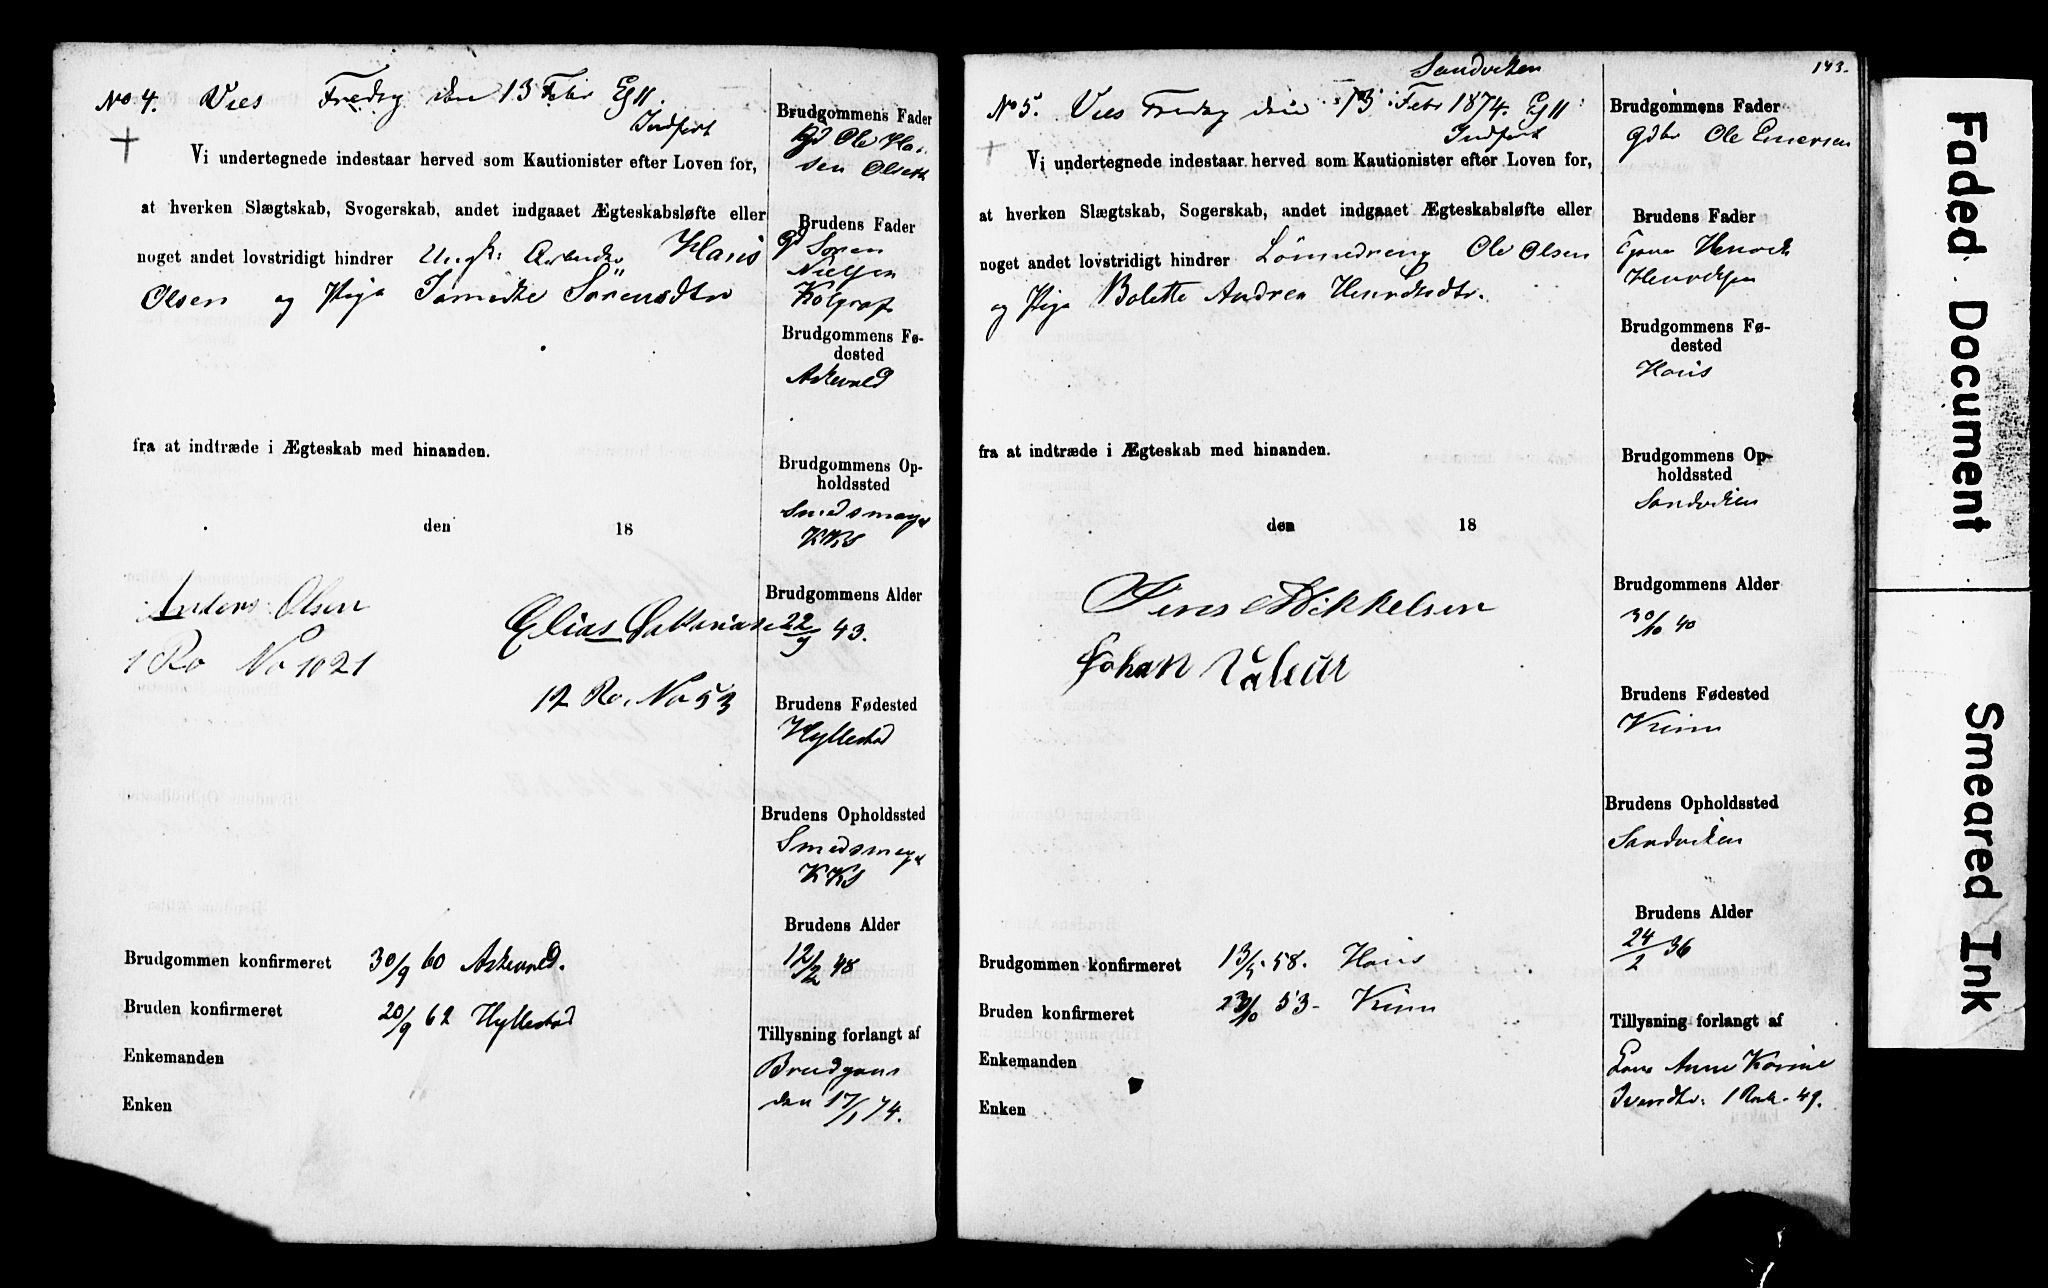 No 4. Vies Fredag den 13 Febr Kl 11.
Indført
Vi undertegnede indestaar herved som Kautionister efter Loven for,
at hverken Slægtskab, Svogerskab, andet indgaaet Ægteskabsløfte eller
noget andet lovstridigt hindrer Ungk: Arbeider Hans
Olsen og Pige Sørensdtr
fra at indtræde i Ægteskab med hinanden.
den 18
Anders Olsen
1 Ro No 1021
Elias
12 Ro. No 53
Brudgommen konfirmeret 30/9 60 Askevold.
Bruden konfirmeret 20/9 62 Hyllestad
Enkemanden
Enken
Brudgommens Fader
Ole Han
sen Olset
Brudens Fader
Gd Søren
Nielsen
Brudgommens Fø-
dested
Askevold
Brudgommens Op-
holdssted
Smedsmuget
KKS
Brudgommens Alder
22/9 43.
Brudens Fødested
Hyllestad
Brudens Opholdssted
Smedsmuget
KKS
Brudens Alder
12/2 48
Tillysning forlangt af
Brudgom
den 17/1 74.
143.
Sandviken
No 5. Vies Fredag den 13 Febr 1874. Kl 11
Indført
Vi undertegnede indestaar herved som Kautionister efter Loven for,
at hverken Slægtskab, Sogerskab, andet indgaaet Ægteskabsløfte eller
noget andet lovstridigt hindrer Ole Olsen
og Pige Bolette Andrea Henriksdtr.
fra at indtræde i Ægteskab med hinanden.
den 18
Jens Mikkelsen
Johan Valeur
Brudgommen konfirmeret 13/5 58. Hous
Bruden konfirmeret 23/10 53 - Kinn
Enkemanden
Enken
Brudgommens Fader
Gdbr Ole Einersen
Brudens Fader
Henrik
Henriksen
Brudgommens Fø-
dested
Hous
Brudgommens Op-
holdssted
Sandviken
Brudgommens Alder
30/10 40
Brudens Fødested
Kinn
Brudens Opholdssted
Sandviken
Brudens Alder
24/2 36
Tillysning forlangt af
Anne Karine
Iversdtr. 1 Rode 49.
Faded Document
Smeared Ink